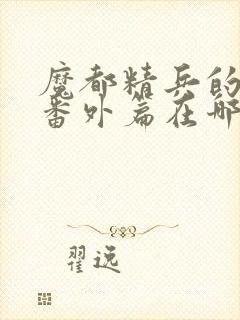 魔都精兵的
番外篇在哪
翟逸